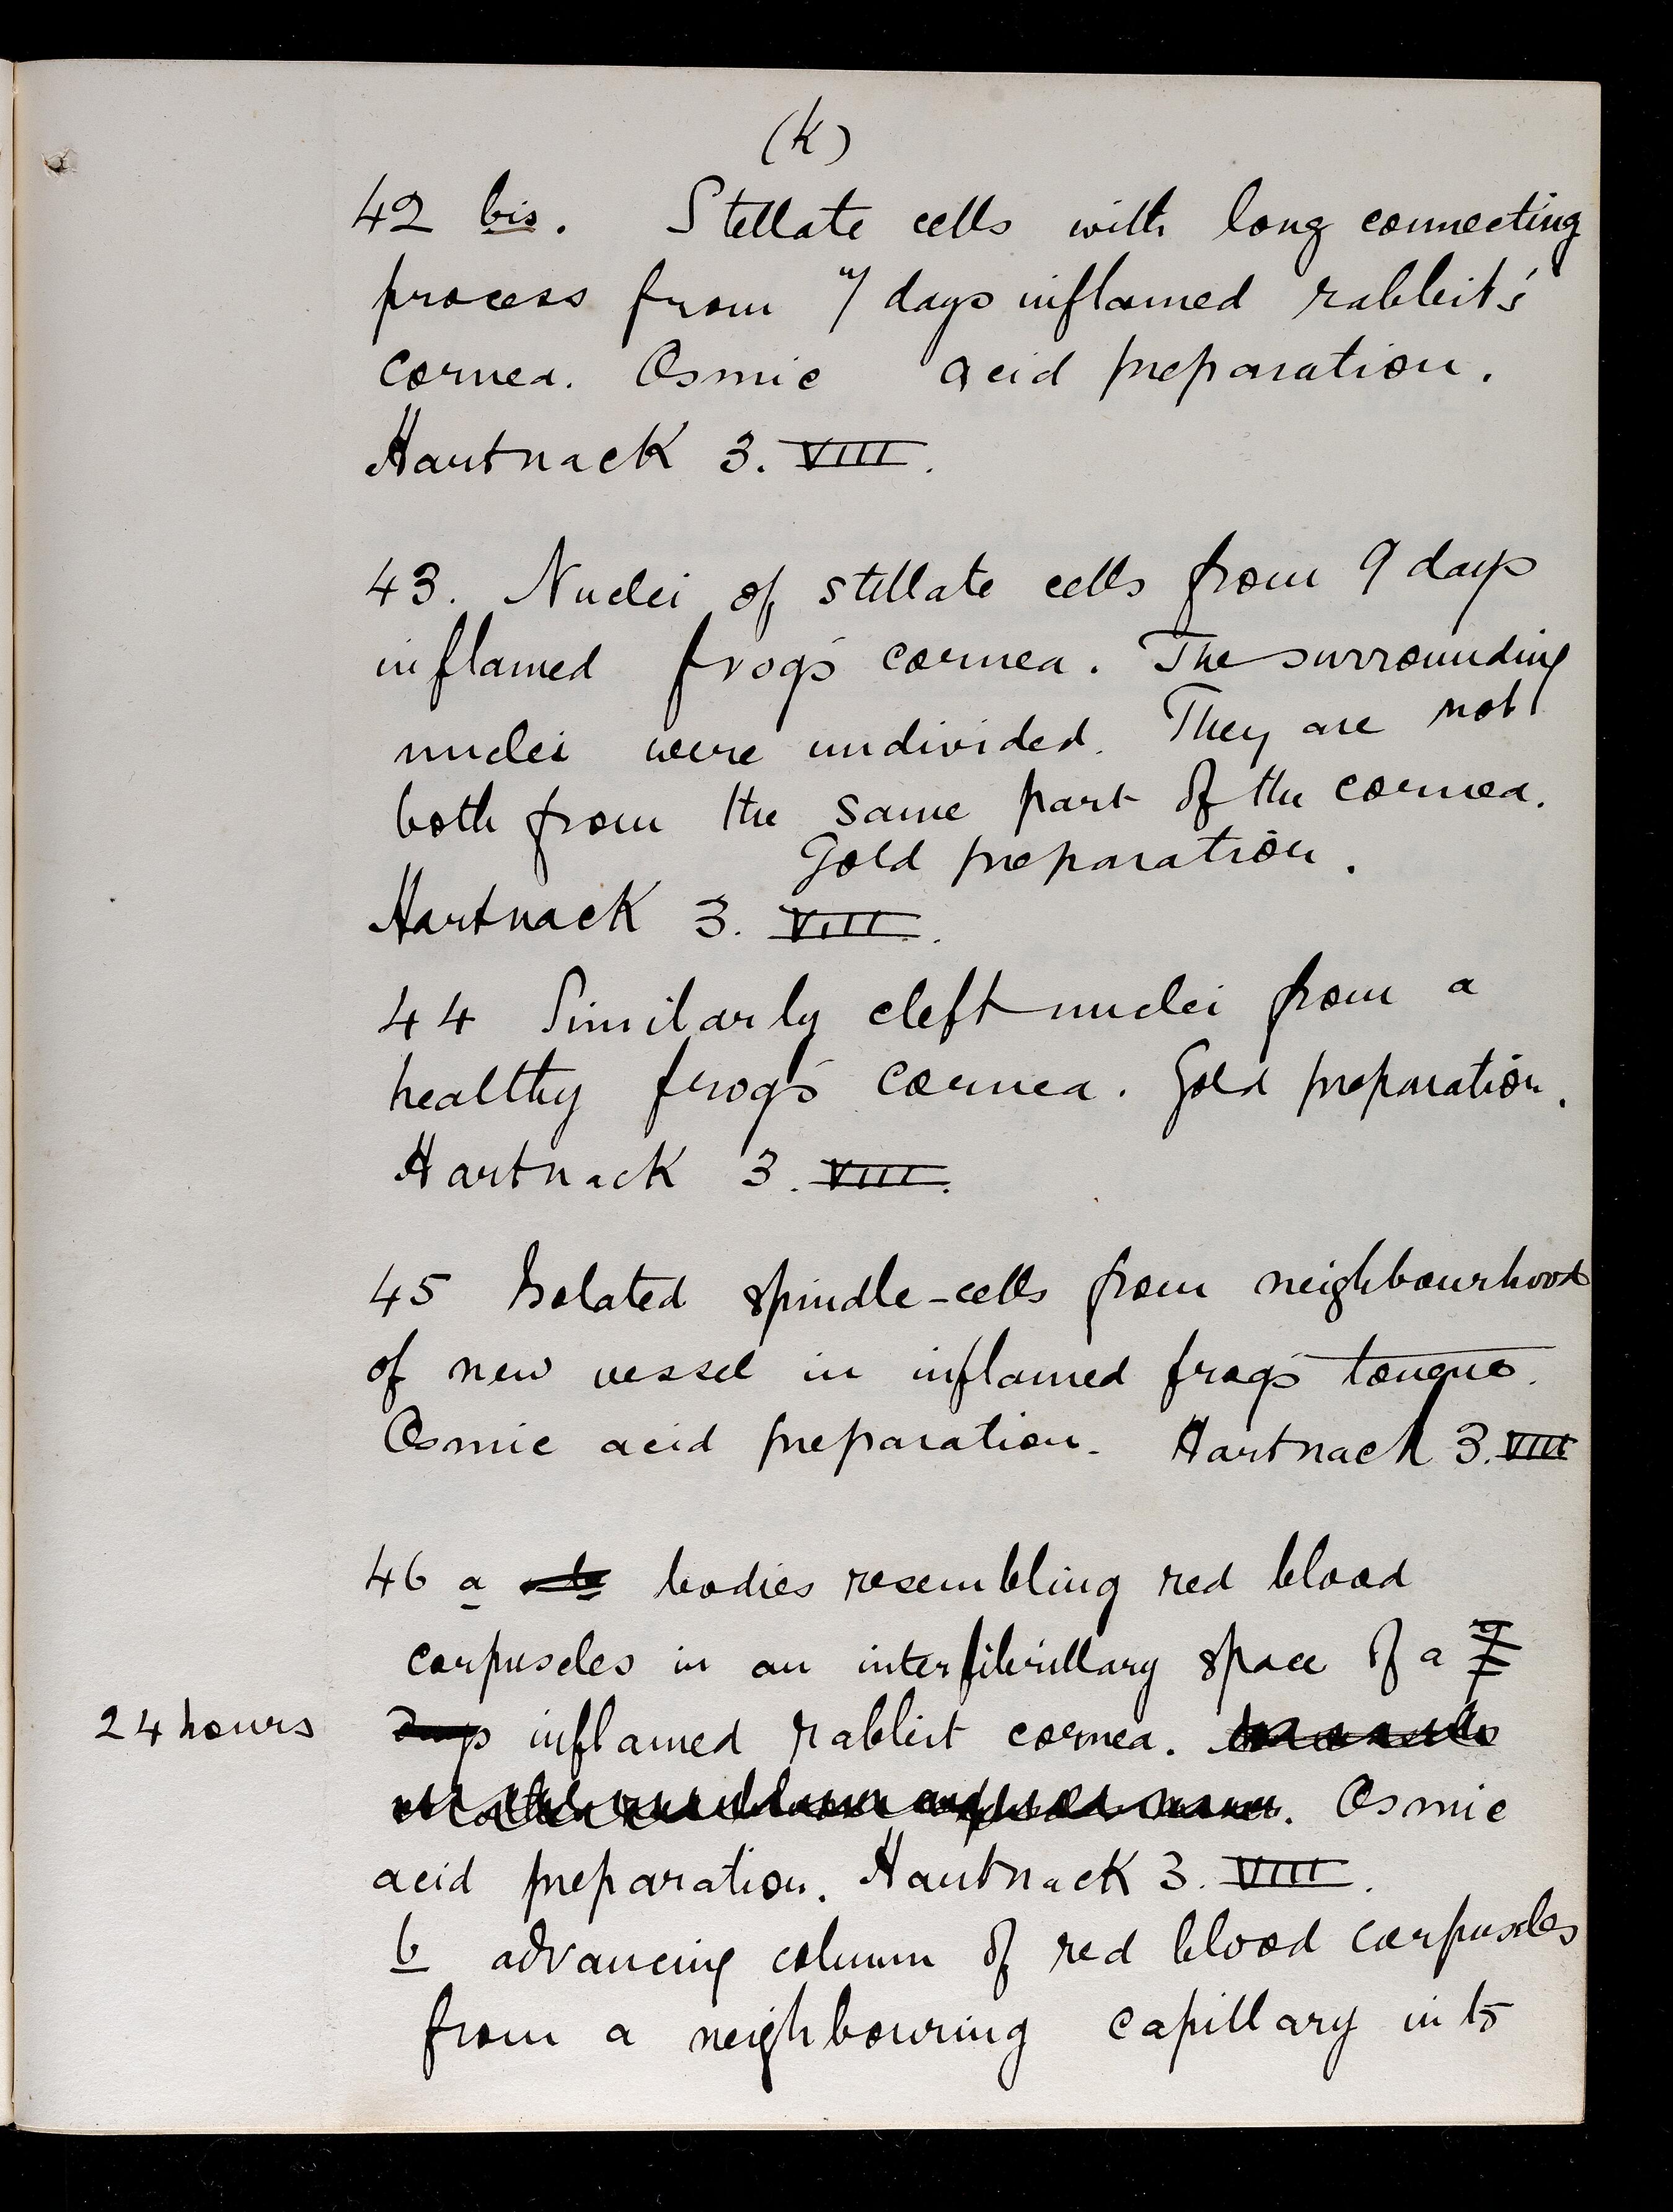 (k)
42 bis. Stellate cells with long connecting
process from 7 days inflamed rabbit's
cornea. Osmic acid preparation.
Hartnack 3. VIII.
43. Nuclei of stellate cells from 9 days
inflamed frog's cornea. The surrounding
nuclei were undivided. They are not
both from the same part of the cornea.
Gold preparation.
Hartnack 3. VIII.
44 Similarly cleft nuclei from a
healthy frog's cornea. Gold preparation.
Hartnack 3. VIII.
45 Isolated spindle-cells from neighbourhood
of new vessel in inflamed frog's tongue.
Osmic acid preparation. Hartnack 3. VIII
46 a bodies resembling red blood
corpuscles in an interfibrillary space of a 7
24 hours days inflamed rabbit cornea.
Osmic
acid preparation. Hartnack 3. VIII.
b advancing column of red blood corpuscles
from a neighbouring capillary into